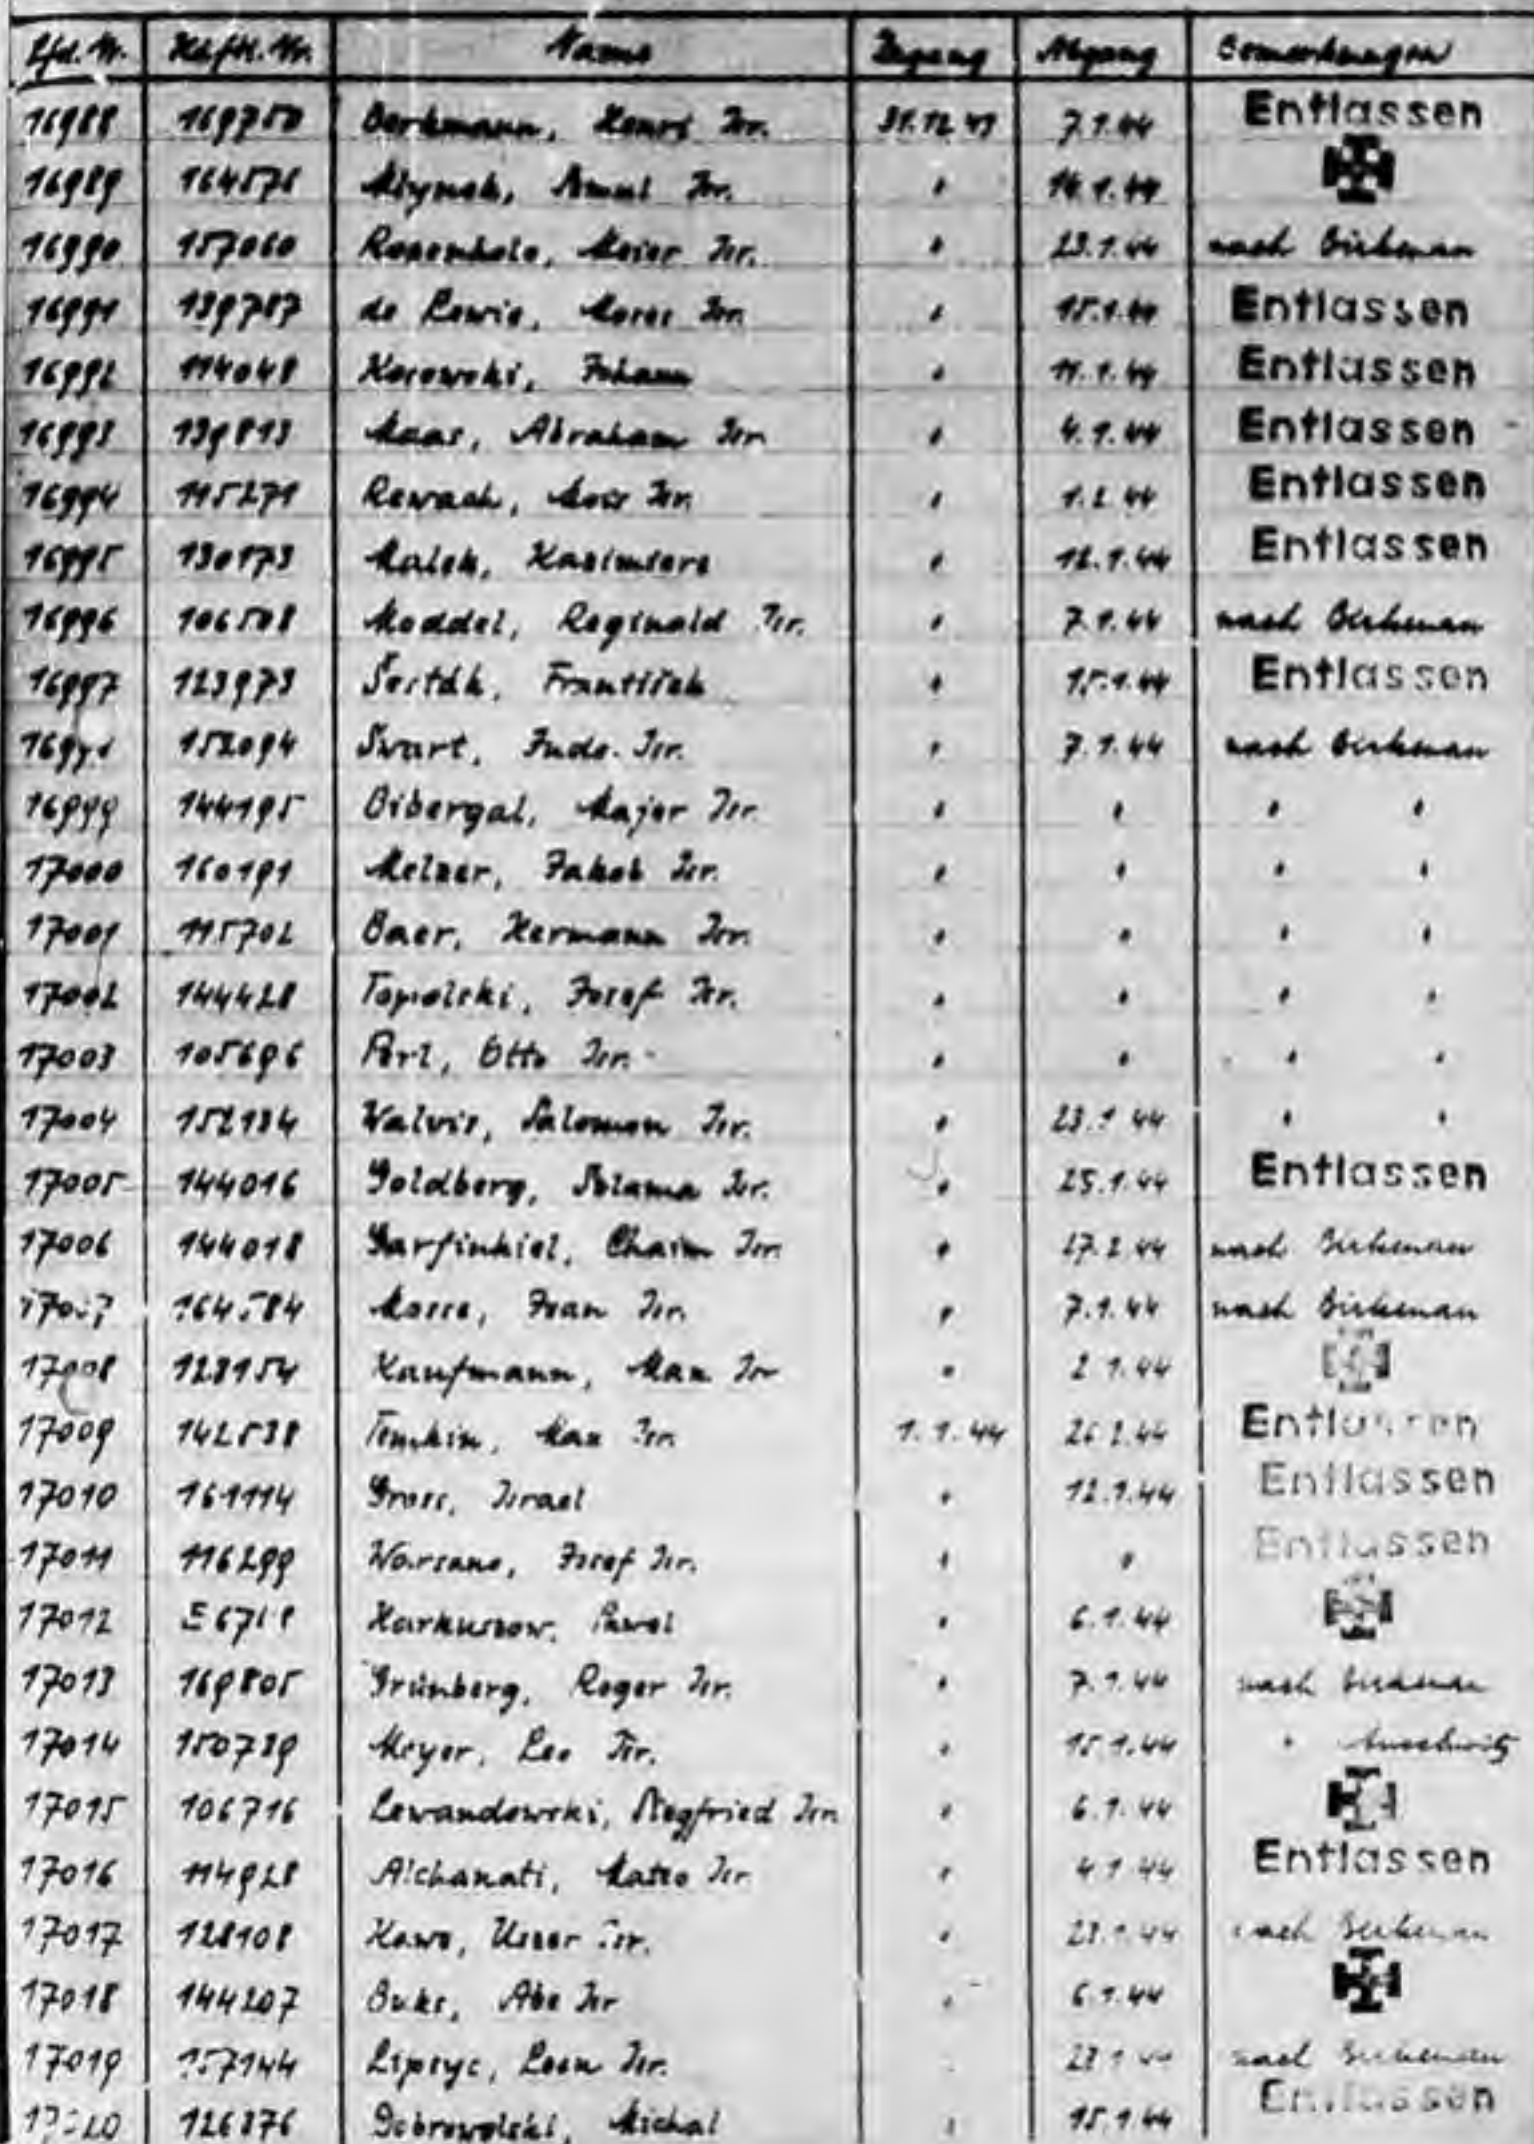 Lfd. Nr. Häftl. Nr. Name Zugang Abgang Bemerkungen
16988 169750 Berkmann, Henri Isr. 31.12.43 7.1.44 Entlassen
16989 164576 Mlynek, Isr. " 14.1.44
16990 157060 Meier Isr. " 23.1.44 nach Birkenau
16991 139787 de Lewie, Moses Isr. " 15.1.44 Entlassen
16992 114048 Kosowski, Johann " 11.1.44 Entlassen
16993 139813 Maas, Abraham Isr. " 4.1.44 Entlassen
16994 115271 Rewach, Isr. " 1.2.44 Entlassen
16995 130173 Malek, Kasimierz " 12.1.44 Entlassen
16996 106508 Moddel, Reginald Isr. " 7.1.44 nach Birkenau
16997 123973 Šesták, František " 15.1.44 Entlassen
152094 Swart, Juda Isr. " 7.1.44 nach Birkenau
16999 144195 Bibergal, Majer Isr. " " " "
17000 160191 Melzer, Jakob Isr. " " " "
17001 115702 Baer, Hermann Isr. " " " "
17002 144428 Topolski, Josef Isr. " " " "
17003 105696 Perl, Otto Isr. " " " "
17004 152134 Walvis, Salomon Isr. " 23.1.44 " "
17005 144016 Goldberg, Szlama Isr. " 25.1.44 Entlassen
17006 144018 Garfinkiel, Chaim Isr. " 27.2.44 nach Birkenau
164584 Mosse, Iwan Isr. " 7.1.44 nach Birkenau
17008 128154 Kaufmann, Max Isr " 2.1.44
17009 142538 Temkin, Max Isr. 1.1.44 26.2.44 Entlassen
17010 161114 Gross, Israel " 12.1.44 Entlassen
17011 116299 Warsano, Josef Isr. " " Entlassen
17012 Harkuszow, Pawel " 6.1.44
17013 169805 Grünberg, Roger Isr. " 7.1.44 nach Birkenau
17014 150789 Meyer, Leo Isr. " 15.1.44 " Auschwitz
17015 106716 Lewandowski, Siegfried Isr. " 6.1.44
17016 114928 Alchanati, Matteo Isr. " 4.1.44 Entlassen
17017 128108 Kawe, Uszer Isr. " 23.1.44 nach Birkenau
17018 144207 Buks, Aba Isr " 6.1.44
17019 157144 Lipszyc, Leon Isr. 23.1.44 nach Birkenau
126876 Dobrowolski, Michal " 15.1.44 Entlassen